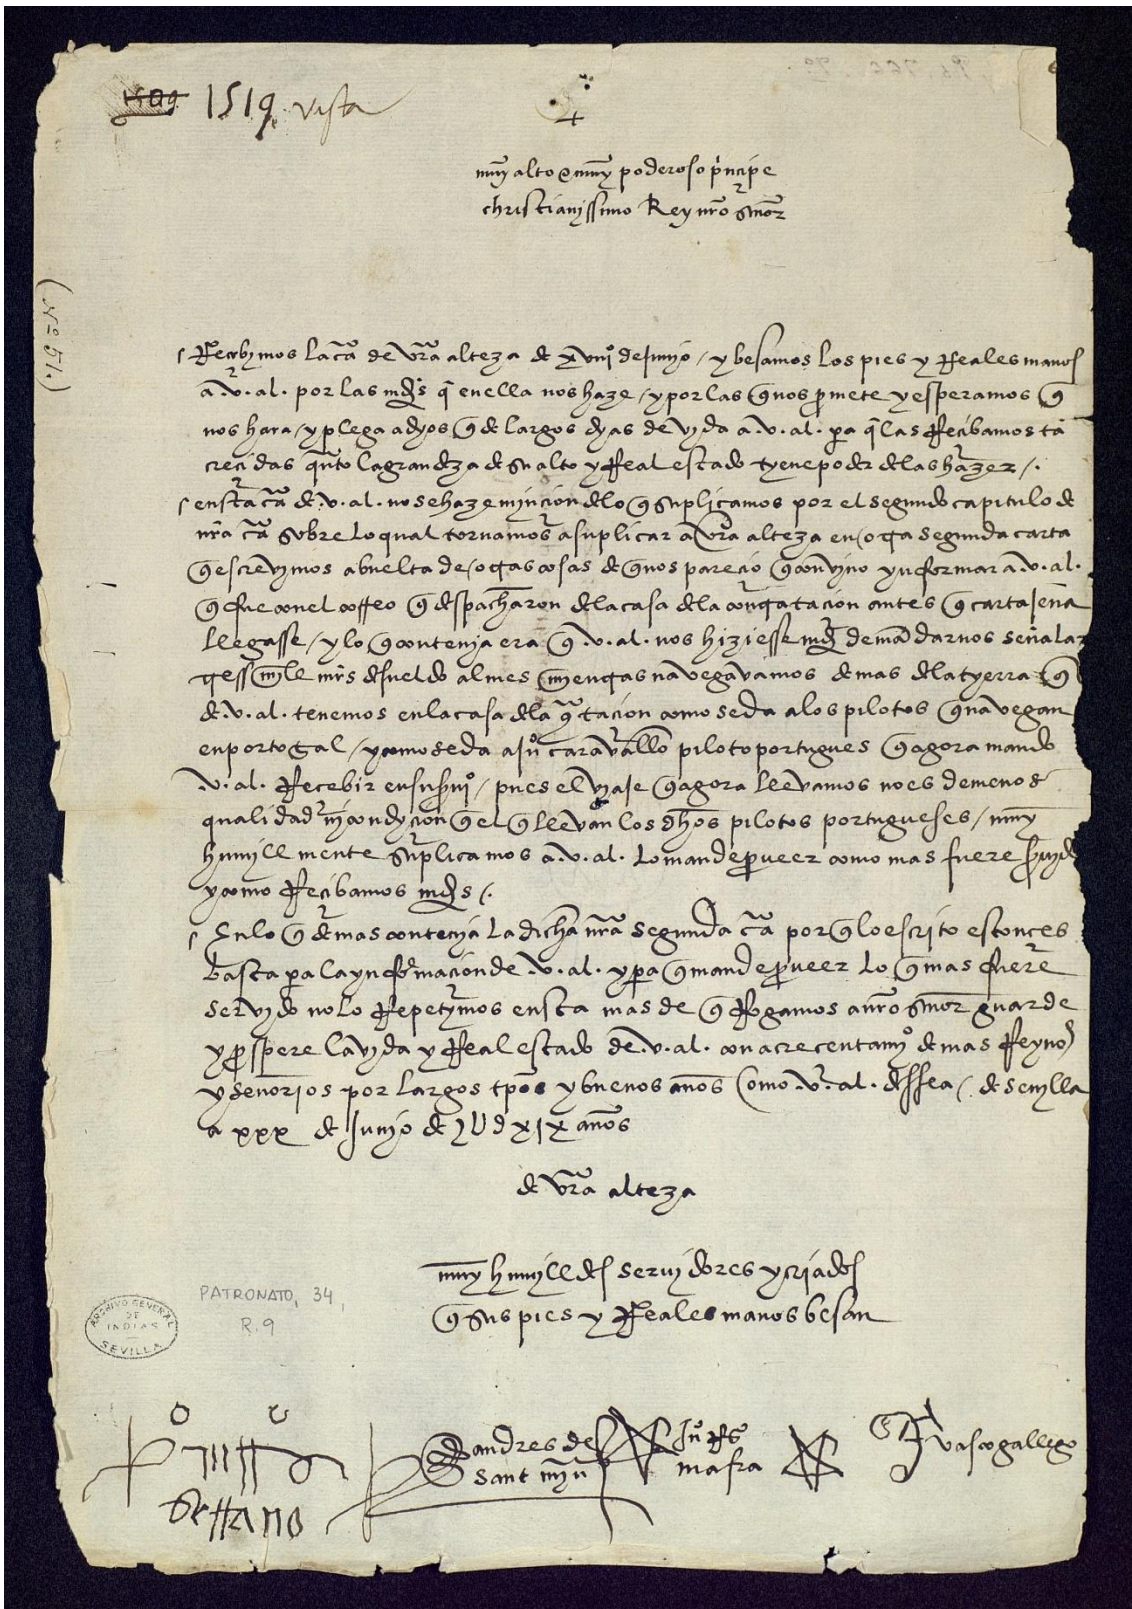 1519 vista
+
muy alto e muy poderoso prncipe
christianissimo Rey nro señor
(Nº 5º.)
Recebymos la cra de vra alteza de xviiiº de junyo / y besamos los pies y Reales manos
a .v. al. por las mds q en ella nos haze / y por las q nos pmete y esperamos q
nos hara / y plega a dyos q de largos dyas de vyda a .v. al. pa q las Recibamos ta
crecidas qnto la grandeza de su alto y Real estado tyene poder de las hazer /.
en sta cra de .v. al. no se haze mynción de lo q suplicamos por el segundo capitulo de
nra cra sobre lo qual tornamos a suplicar a vra alteza en otra segunda carta
q escrevymos a buelta de otras cosas de q nos pareció q convino ynformar a .v. al.
q fue con el correo q despacharon de la casa de la contratación antes q cartajena
llegasse / y lo q contenja era q .v. al. nos hiziesse md de mandarnos señalar
tress myle mrs de sueldo al mes myentras navegavamos demas de la tyerra q
de .v. al. tenemos en la casa de la qtación como se da a los pilotos q navegan
en portogal / y como se da a juº caravallo piloto portugues q agora mando
.v. al. Recebir en su svyº / pues el viaje q agora llevamos no es de menos
qualidad ny condyción q el q llevan los dhos pilotos portugueses / muy
humyllmente suplicamos a .v. al. lo mande pveer como mas fuere svydo
y como Recibamos mds /.
En lo q demas contenja la dicha nra segunda cra por q lo escrito estonces
basta pa la ynformación de .v. al. y pa q mande pveer lo q mas fuere
servydo no lo Repetymos en sta mas de q Rogamos a nro señor guarde
y pspere la vyda y Real estado de .v. al. con acrecentamyº de mas Reynos
y señorjos por largos tpos y buenos años como .v. al. dessea /. de sevylla
a xxx de junyo de 1UdxIx años
de vra alteza
muy humylldes servydores y crjados
q sus pies y Reales manos besan
PATRONATO, 34,
R. 9
ARCHIVO GENERAL
DE
INDIAS
SEVILLA
Serrano
andres de
sant myn
juº Rs
mafra
vasco gallego